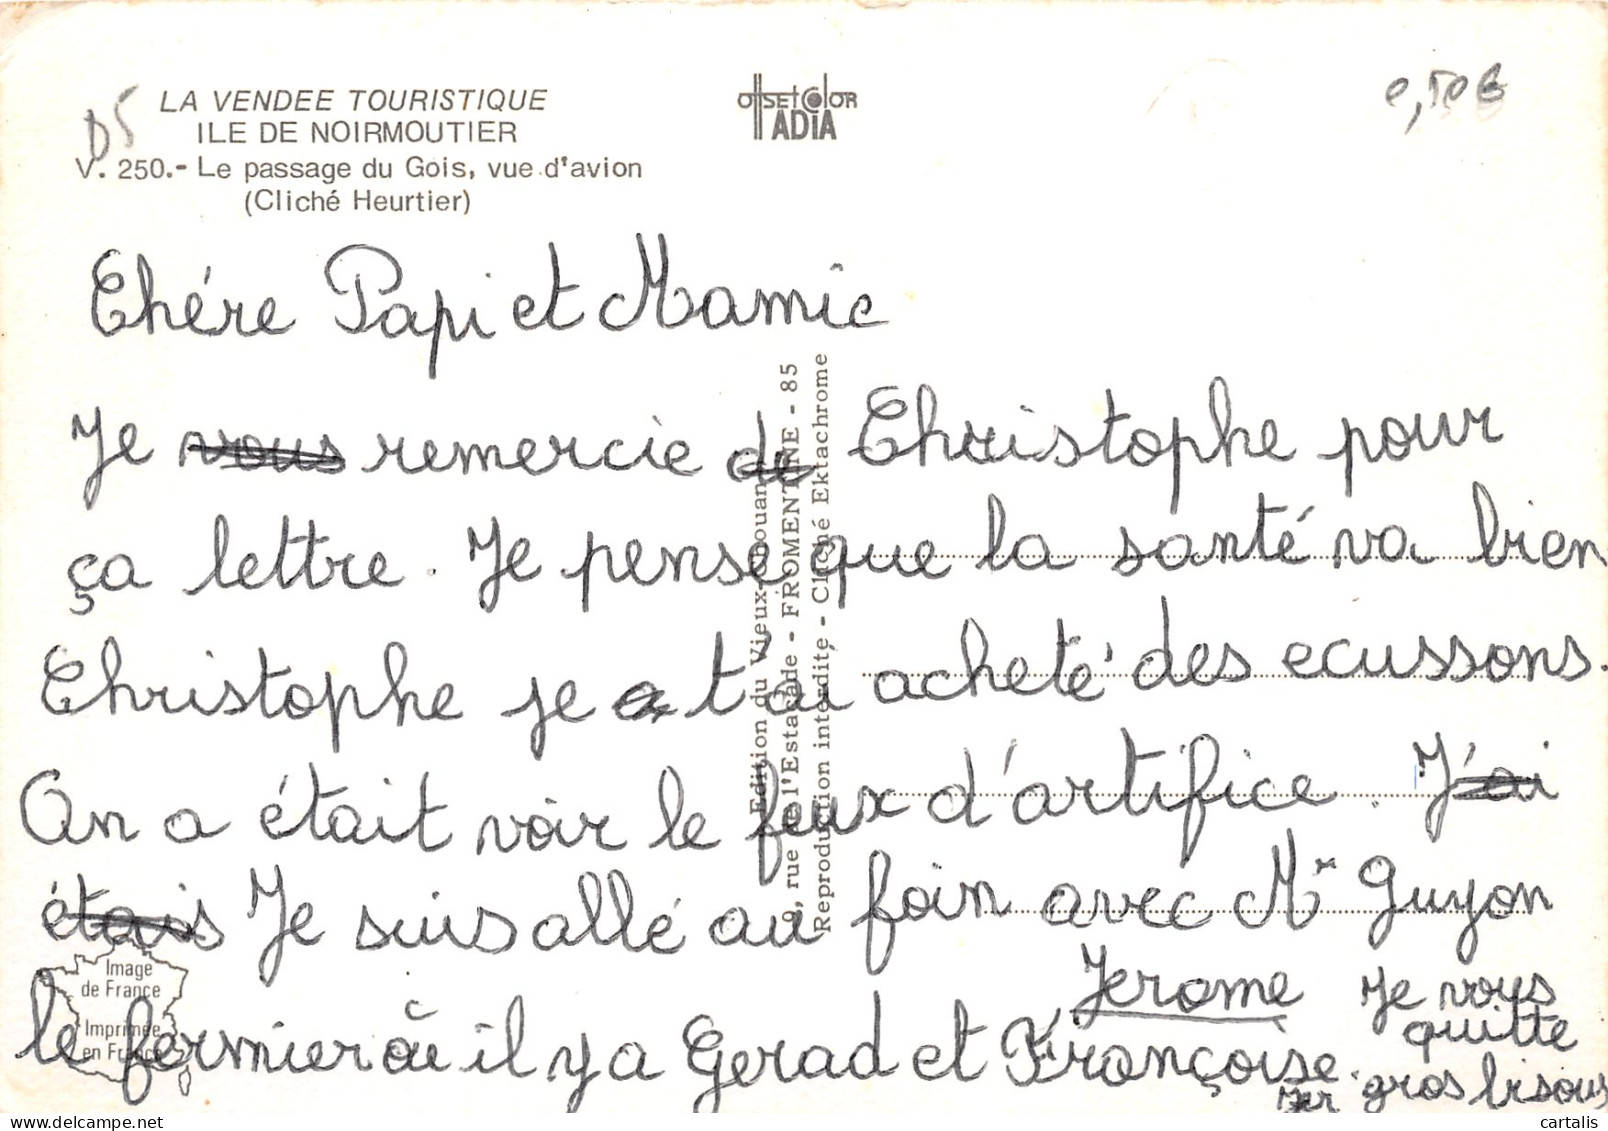 D5
0,50€
LA VENDEE TOURISTIQUE
ILE DE NOIRMOUTIER
V. 250.- Le passage du Gois, vue d'avion
(Cliché Heurtier)
OffSEtColOR
ADIA
Chére Papi et Mamie
Je vous remercie de Christophe pour
ça lettre. Je pense que la santé va bien
Christophe je t'ai acheté des ecussons.
On a était voir le feux d'artifice. J'ai
étais Je suis allé au foin avec Mr Guyon
le fermier où il y a Gerad et Françoise.
Jerome
Je vous
quitte
gros bisous
Edition du Vieux
9, rue de l'Estacade - FROMENTINE - 85
Reproduction interdite - Cliché Ektachrome
Image
de France
Imprimée
en France
cartalis